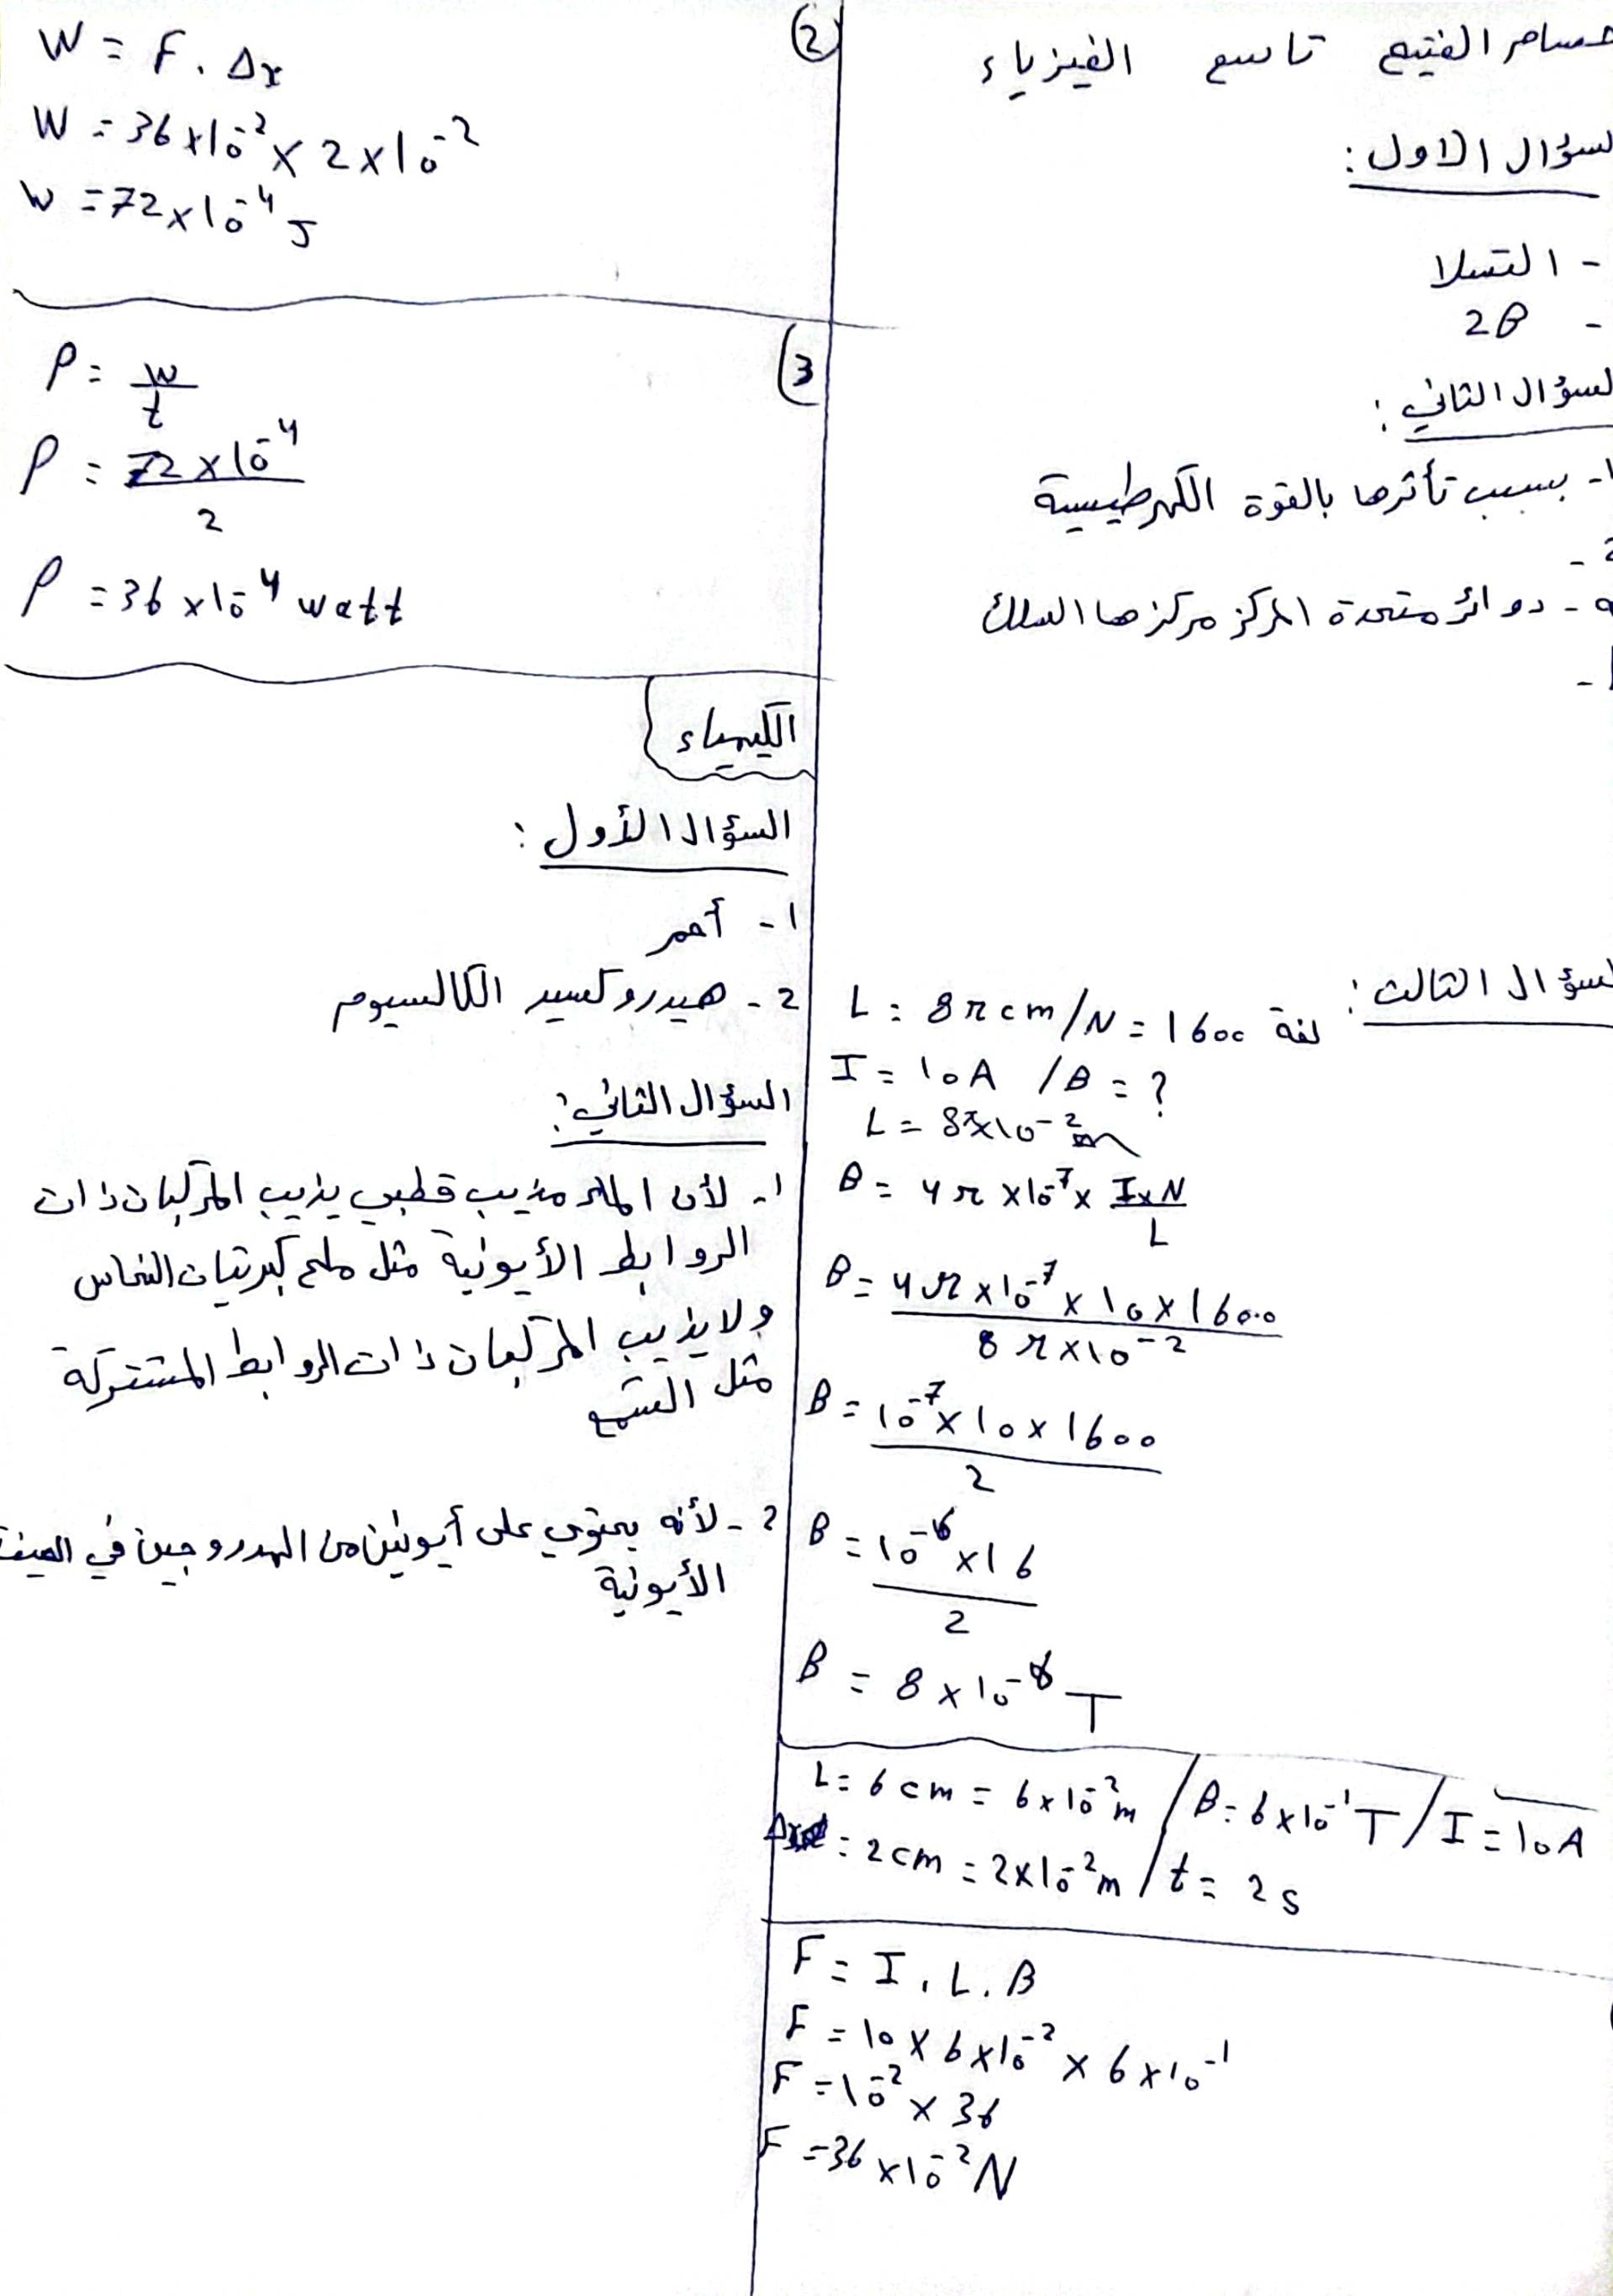 حسام الفتيح تاسع الفيزياء
لسؤال الاول:
- التسلا
- 2B
لسؤال الثاني:
1- بسبب تأثرها بالقوة الكهرطيسية
2 -
- دوائر متحدة المركز مركزها السلك
-
لسؤال الثالث: L = 8π cm / N = 1600 لفة
I = 10A / B = ?
L = 8π×10⁻² m
B = 4π × 10⁻⁷ × I×N / L
B = 4π × 10⁻⁷ × 10 × 1600 / 8π×10⁻²
B = 10⁻⁷ × 10 × 1600 / 2
B = 10⁻⁶ × 16 / 2
B = 8 × 10⁻⁸ T
L = 6 cm = 6×10⁻² m / B = 6×10⁻¹ T / I = 10A
Δx = 2cm = 2×10⁻² m / t = 2s
F = I . L . B
F = 10 × 6×10⁻² × 6×10⁻¹
F = 10⁻² × 36
F = 36 × 10⁻² N
(2
W = F . Δx
W = 36×10⁻² × 2×10⁻²
W = 72×10⁻⁴ J
(3
P = W / t
P = 72×10⁻⁴ / 2
P = 36×10⁻⁴ watt
الكيمياء
السؤال الأول:
1- أحمر
2- هيدروكسيد الكالسيوم
السؤال الثاني:
1- لأن الماء مذيب قطبي يذيب المركبات ذات
الروابط الأيونية مثل ملح كبريتات النحاس
ولا يذيب المركبات ذات الروابط المشتركة
مثل الشمع
2- لأنه يحتوي على أيونين من الهدروجين في الصيغ
الأيونية